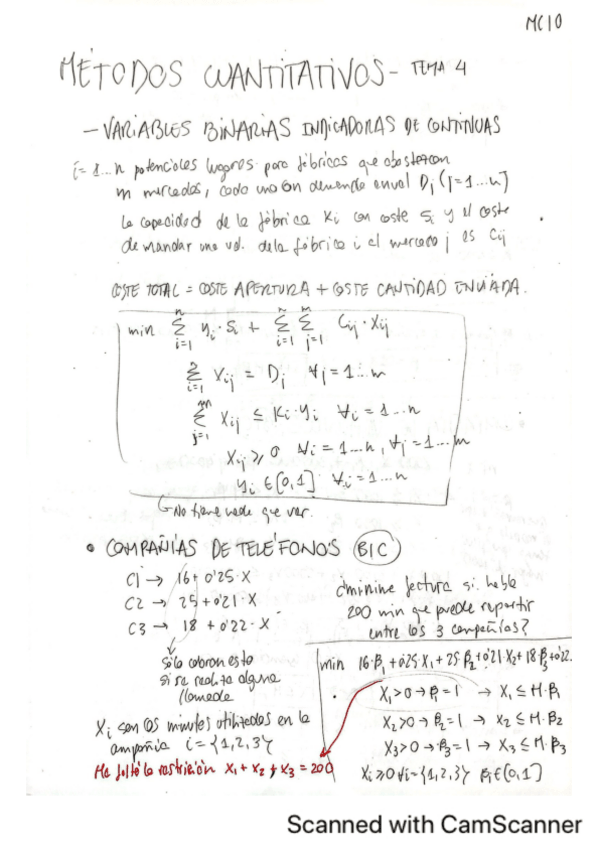 MC10
MÉTODOS CUANTITATIVOS - TEMA 4
- VARIABLES BINARIAS INDICADORAS DE CONTINUAS
i = 1...n potenciales lugares para fábricas que abastezcan
m mercados, cada uno con demanda anual Dj (j=1...n)
la capacidad de la fábrica Ki con coste Si y el coste
de mandar una ud. de la fábrica i al mercado j es Cij
COSTE TOTAL = COSTE APERTURA + COSTE CANTIDAD ENVIADA.
min Σ(i=1, n) yi·Si + Σ(i=1, n) Σ(j=1, m) Cij·Xij
Σ(i=1, n) Xij = Dj ∀j=1...m
Σ(j=1, m) Xij ≤ Ki·yi ∀i=1...n
Xij ≥ 0 ∀i=1...n, ∀j=1...m
yi ∈ {0,1} ∀i=1...n
No tiene nada que ver.
• COMPAÑÍAS DE TELÉFONOS (BIC)
C1 → 16 + 0'25·X
C2 → 25 + 0'21·X
C3 → 18 + 0'22·X
sólo cobran esto
si se realiza alguna
llamada
Xi son los minutos utilizados en la
compañía i = {1,2,3}
Me faltó la restricción X1 + X2 + X3 = 200
¿minima factura si habla
200 min que puede repartir
entre las 3 compañías?
min 16·β1 + 0'25·X1 + 25·β2 + 0'21·X2 + 18·β3 + 0'22·
X1>0 → β1=1 → X1 ≤ M·β1
X2>0 → β2=1 → X2 ≤ M·β2
X3>0 → β3=1 → X3 ≤ M·β3
Xi ≥ 0 ∀i={1,2,3} βi∈{0,1}
Scanned with CamScanner